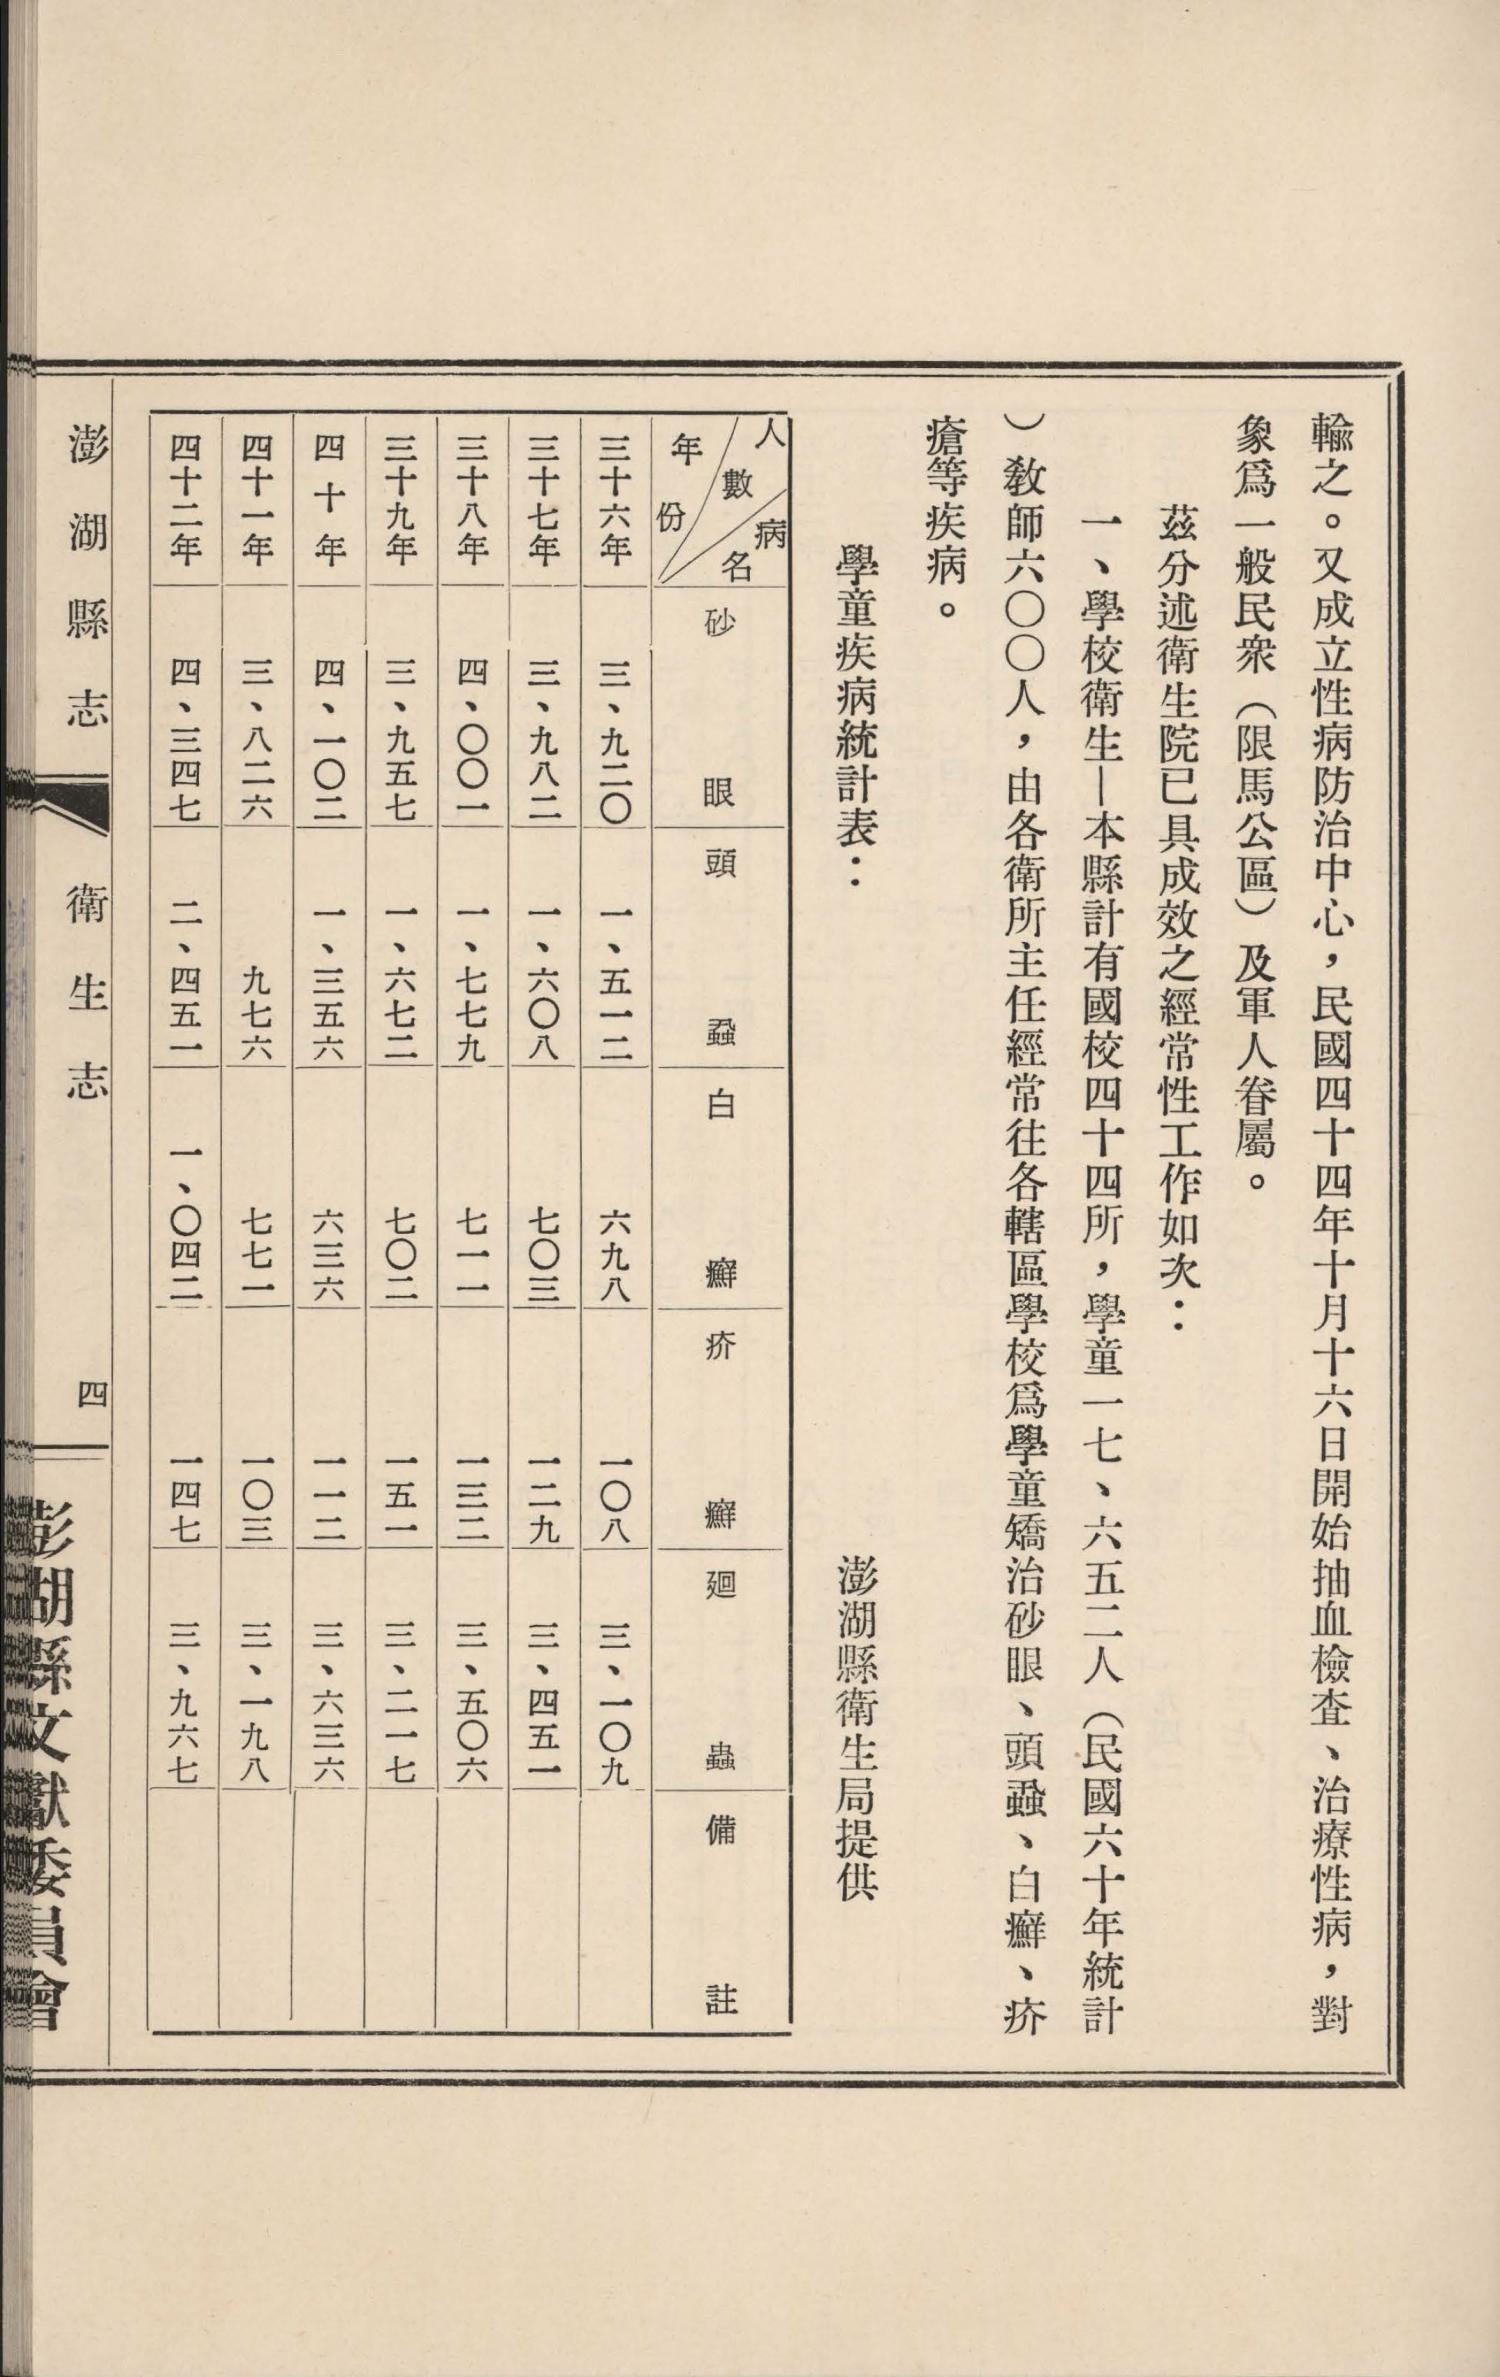 輸之。又成立性病防治中心，民國四十四年十月十六日開始抽血檢查、治療性病，對
象爲一般民衆（限馬公區）及軍人眷屬。
茲分述衛生院已具成效之經常性工作如次：
一、學校衛生—本縣計有國校四十四所，學童一七、六五二人（民國六十年統計
）教師六〇〇人，由各衛所主任經常往各轄區學校爲學童矯治砂眼、頭蝨、白癬、疥
瘡等疾病。
學童疾病統計表： 澎湖縣衛生局提供
人數 病名 年份 砂眼 頭蝨 白癬 疥癬 廻蟲 備註
三十六年 三、九二〇 一、五一二 六九八 一〇八 三、一〇九
三十七年 三、九八二 一、六〇八 七〇三 一二九 三、四五一
三十八年 四、〇〇一 一、七七九 七一一 一三二 三、五〇六
三十九年 三、九五七 一、六七二 七〇二 一五一 三、二一七
四十年 四、一〇二 一、三五六 六三六 一一二 三、六三六
四十一年 三、八二六 九七六 七七一 一〇三 三、一九八
四十二年 四、三四七 二、四五一 一、〇四二 一四七 三、九六七
澎湖縣志 衛生志 四
澎湖縣文獻委員會